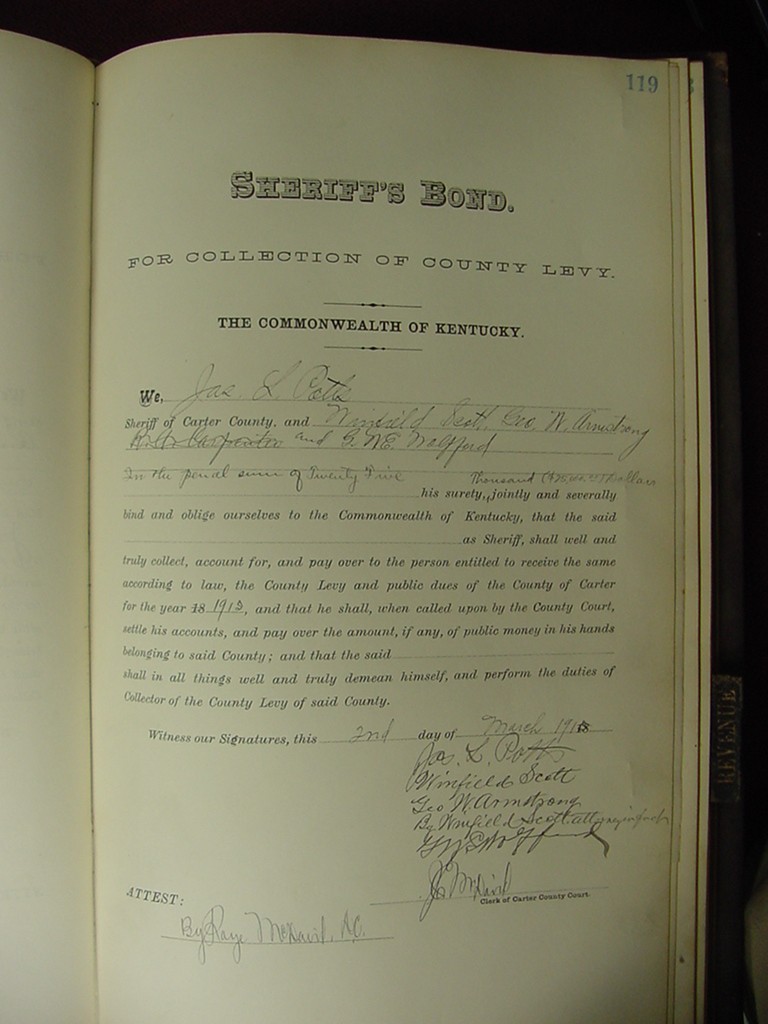 119
SHERIFF'S BOND.
FOR COLLECTION OF COUNTY LEVY.
THE COMMONWEALTH OF KENTUCKY.
We, Jas. L. Potts
Sheriff of Carter County, and Winfield Scott, Geo. W. Armstrong
and G. W. E. Wolfford
In the penal sum of Twenty Five Thousand Dollars
his surety, jointly and severally
bind and oblige ourselves to the Commonwealth of Kentucky, that the said
as Sheriff, shall well and
truly collect, account for, and pay over to the person entitled to receive the same
according to law, the County Levy and public dues of the County of Carter
for the year 18 1913, and that he shall, when called upon by the County Court,
settle his accounts, and pay over the amount, if any, of public money in his hands
belonging to said County; and that the said
shall in all things well and truly demean himself, and perform the duties of
Collector of the County Levy of said County.
Witness our Signatures, this 2nd day of March
Jas. L. Potts
Winfield Scott
Geo W. Armstrong
By Winfield Scott attorney in fact
Jo McDavid
Clerk of Carter County Court.
ATTEST:
By Raye McDavid, D.C.
REVENUE